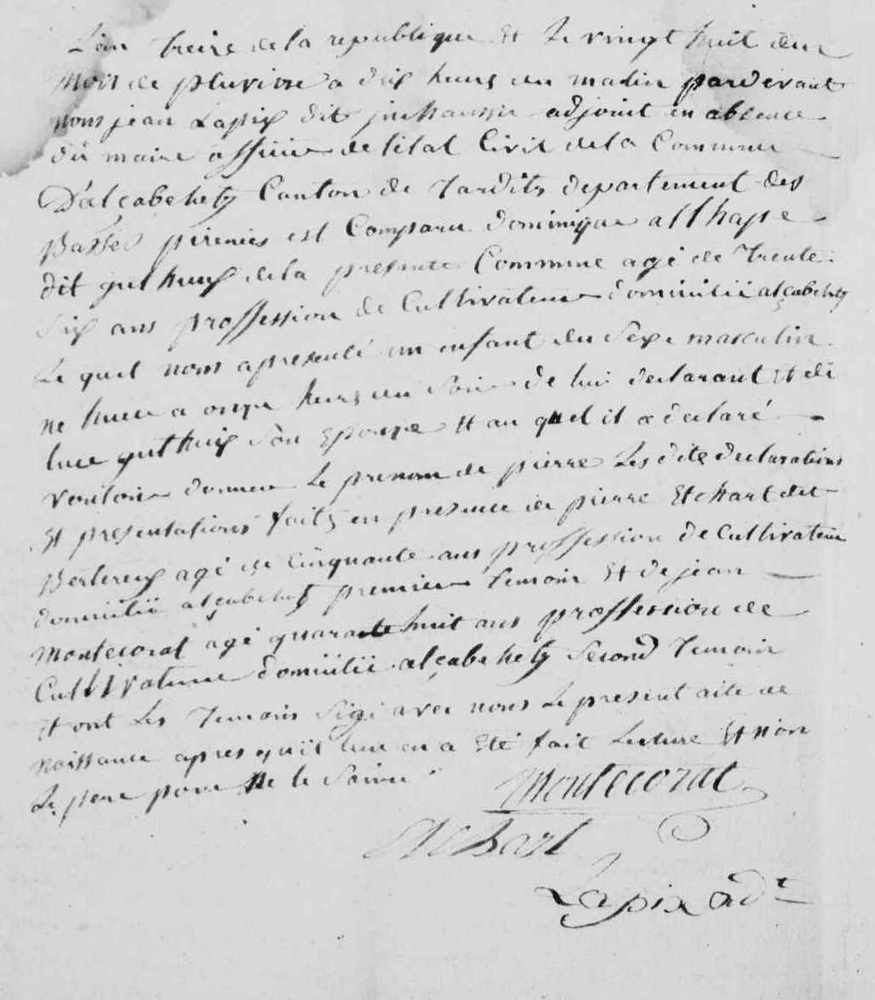 L'an treize de la republique Et Le vingt huit du
mois de pluviose a dix heures du matin pardevant
nous jean Lapix dit adjoint en absence
du maire officier de l'etat Civil de la Commune
D'alçabehety Canton de Tardits departement des
Basses pirenées est Comparu dominique althape
dit guthux de la presente Commune agé de Trente
six ans proffession de Cultivateur domicilié alçabehety
Le quel nous a presenté un enfant du Sexe masculin
ne hier a onze heures du Soir de lui declarant Et de
luce guthux Son Epouse Et au quel il a declaré
vouloir donner Le prenom de pierre Les dites declarations
Et presentations faites en presence de pierre Etchart dit
Berterex agé de Cinquante ans proffession de Cultivateur
domicilié alçabehety premier temoin Et de jean
Montecorat agé quarante huit ans proffession de
Cultivateur domicilié alçabehety Second Temoin
Et ont Les Temoins Sigé avec nous Le present acte de
naissance apres qu'il leur en a Eté fait Lecture Et non
Le pere pour ne le Savoir
Montecorat
Etchart
Lapix adt